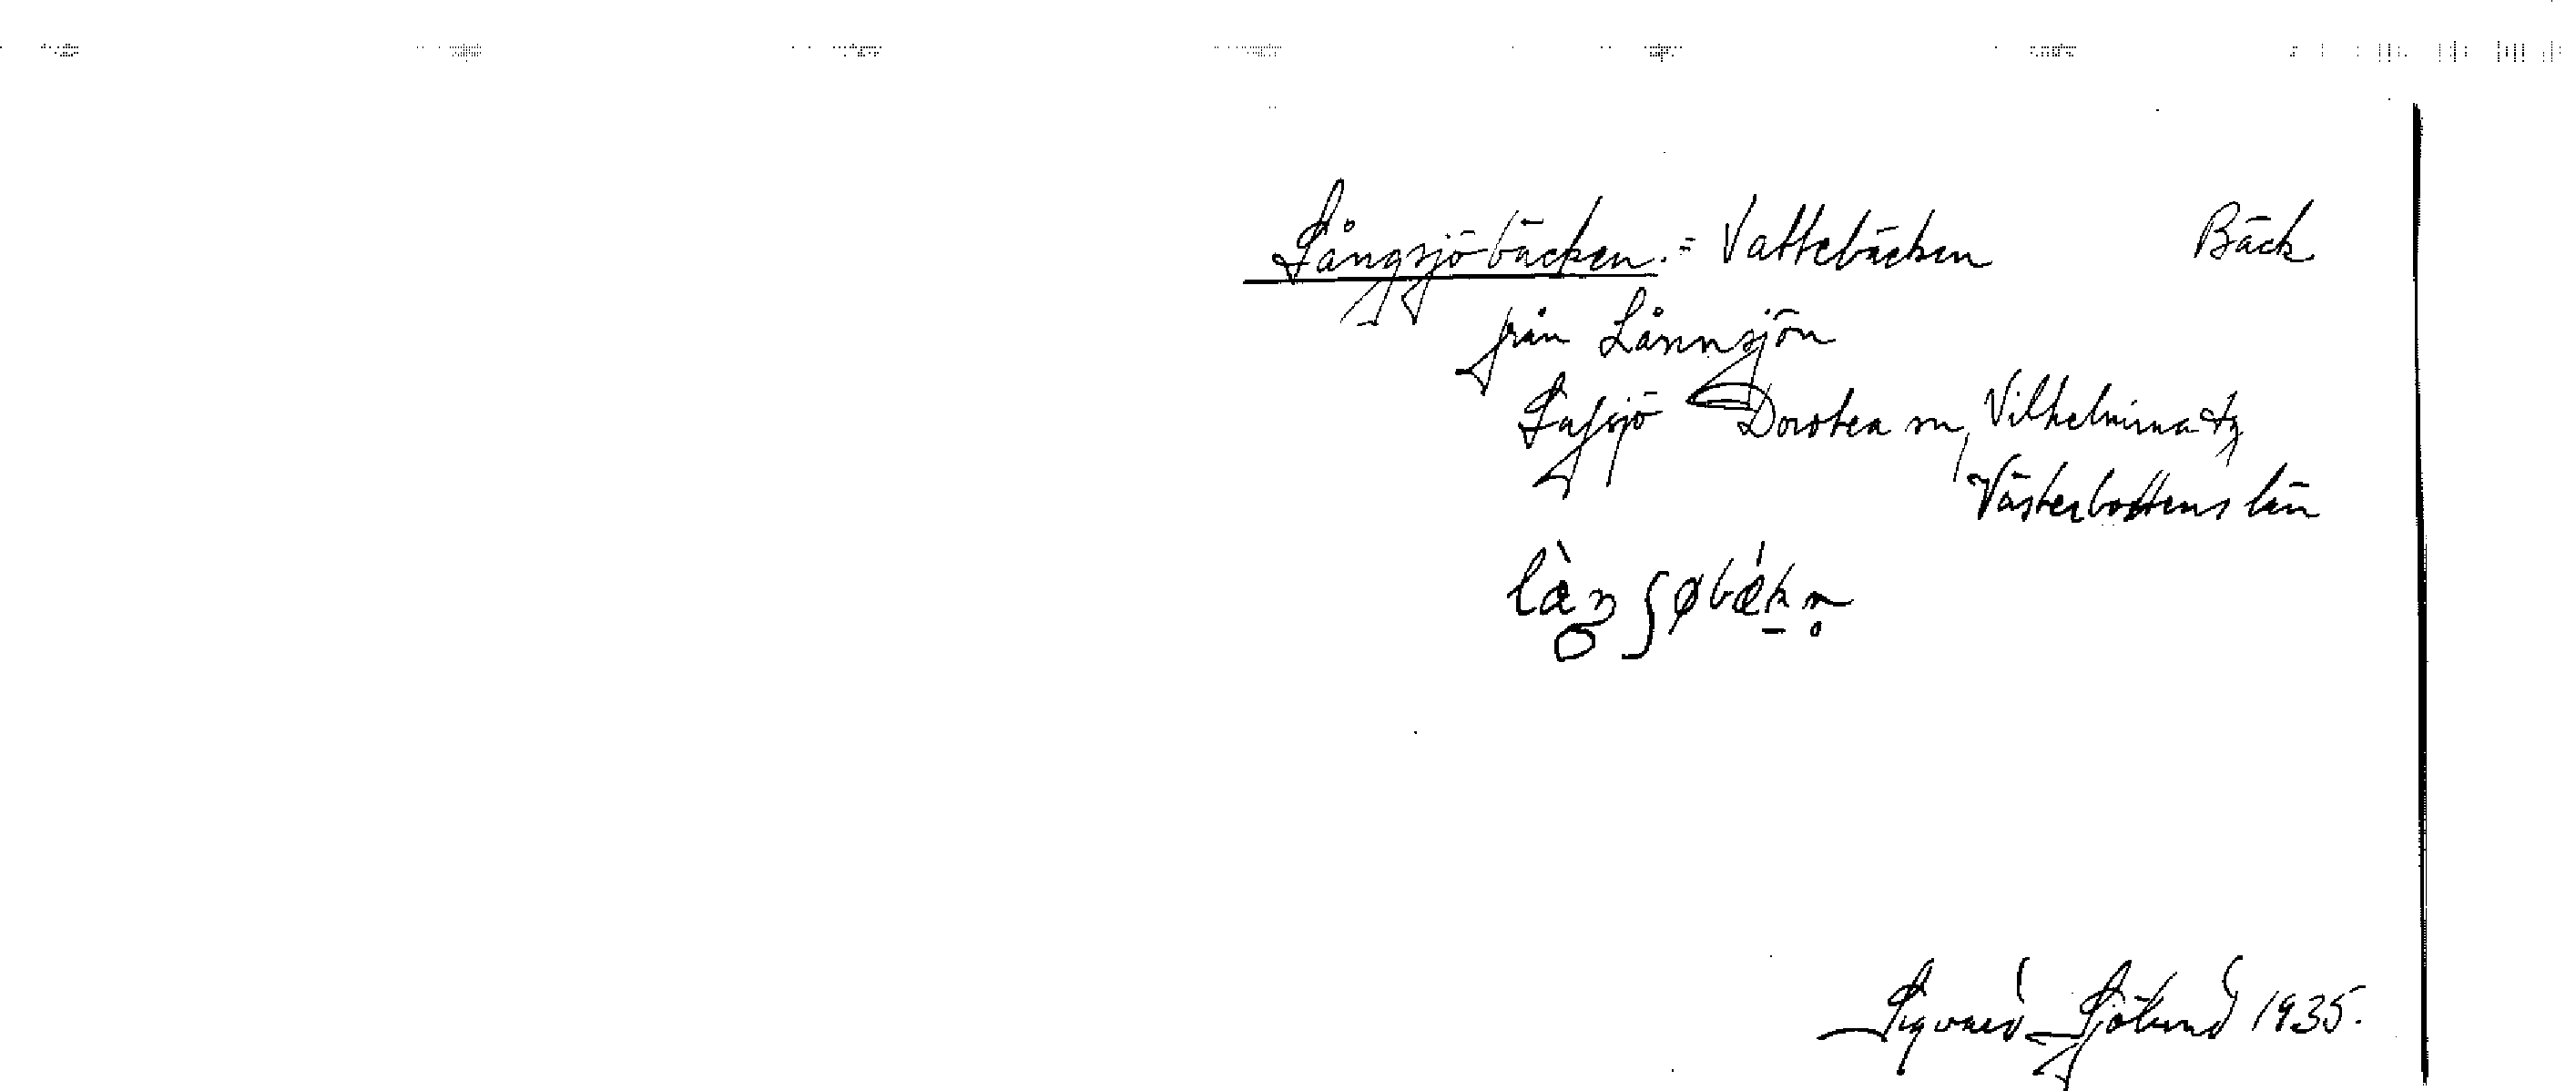 Långsjöbäcken. = Vattebäcken Bäck
från Långsjön
Lajsjö Dorotea sn, Vilhelmina tg
Västerbottens län
Sigvard Sjölund 1935.